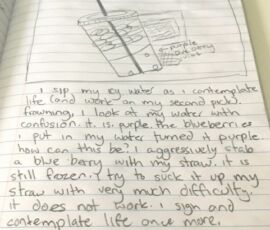 purple
I sip my icy water as I contemplate
life (and work on my second pick).
frowning, I look at my water with
confusion. it. is. purple. the blueberries
I put in my water turned it purple.
how can this be? I aggressively stab
a blue berry with my straw. it is
still frozen. I try to suck it up my
straw with very much difficulty.
it does not work. I sign and
contemplate life once more.